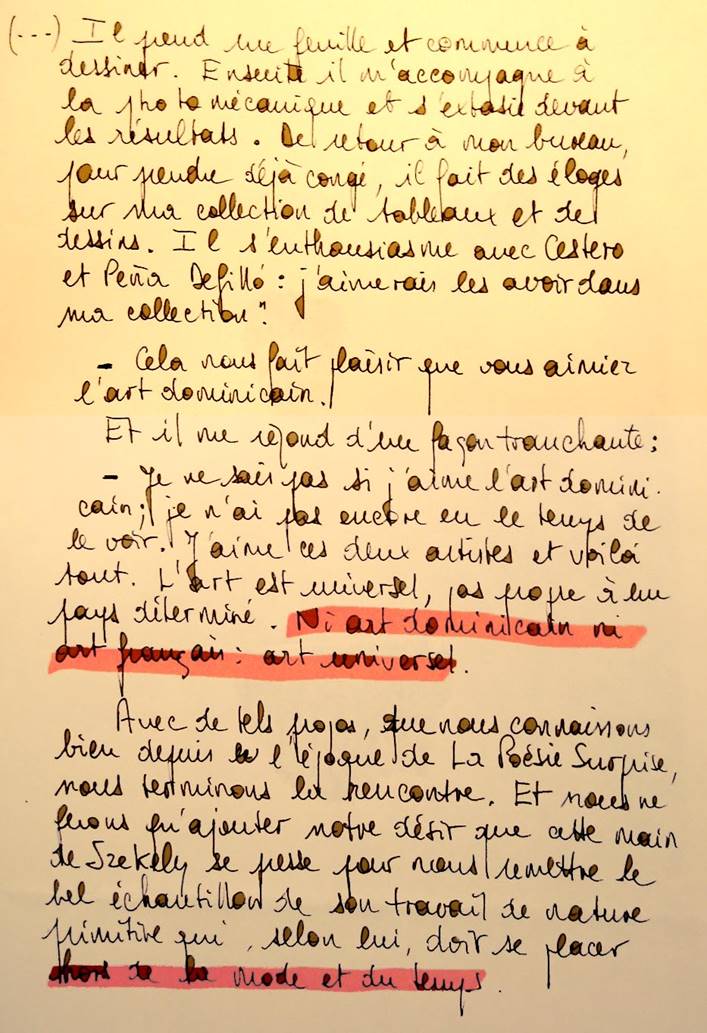 (...) Il prend une feuille et commence à
dessiner. Ensuite il m'accompagne à
la photo mécanique et s'extasie devant
les résultats. De retour à mon bureau,
pour prendre déjà congé, il fait des éloges
sur ma collection de tableaux et de
dessins. Il s'enthousiasme avec Cestero
et Peña Defilló : j'aimerais les avoir dans
ma collection".
- Cela nous fait plaisir que vous aimiez
l'art dominicain.
Et il me répond d'une façon tranchante :
- Je ne sais pas si j'aime l'art domini-
cain ; je n'ai pas encore eu le temps de
le voir. J'aime ces deux artistes et voilà
tout. L'art est universel, pas propre à un
pays déterminé. Ni art dominicain ni
art français : art universel.
Avec de tels propos, que nous connaissons
bien depuis l'époque de La Poésie Surprise,
nous terminons la rencontre. Et nous ne
ferons qu'ajouter notre désir que cette main
de Szekely se presse pour nous remettre le
bel échantillon de son travail de nature
primitive qui, selon lui, doit se placer
hors de la mode et du temps.